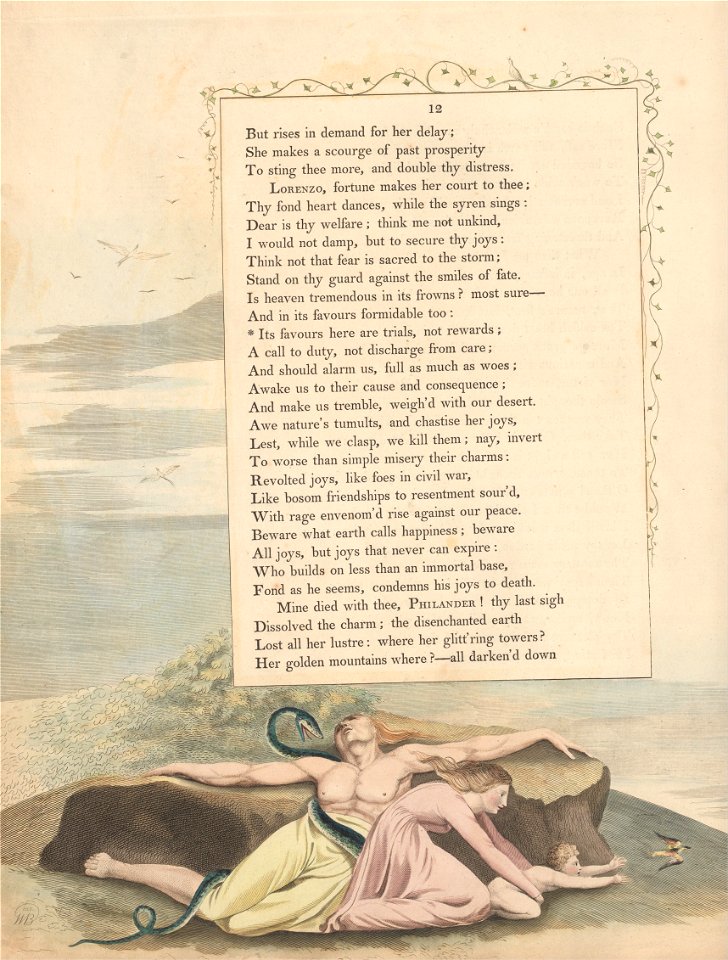 12
But rises in demand for her delay;
She makes a scourge of past prosperity
To sting thee more, and double thy distress.
LORENZO, fortune makes her court to thee;
Thy fond heart dances, while the syren sings:
Dear is thy welfare; think me not unkind,
I would not damp, but to secure thy joys:
Think not that fear is sacred to the storm;
Stand on thy guard against the smiles of fate.
Is heaven tremendous in its frowns? most sure—
And in its favours formidable too:
* Its favours here are trials, not rewards;
A call to duty, not discharge from care;
And should alarm us, full as much as woes;
Awake us to their cause and consequence;
And make us tremble, weigh'd with our desert.
Awe nature's tumults, and chastise her joys,
Lest, while we clasp, we kill them; nay, invert
To worse than simple misery their charms:
Revolted joys, like foes in civil war,
Like bosom friendships to resentment sour'd,
With rage envenom'd rise against our peace.
Beware what earth calls happiness; beware
All joys, but joys that never can expire:
Who builds on less than an immortal base,
Fond as he seems, condemns his joys to death.
Mine died with thee, PHILANDER! thy last sigh
Dissolved the charm; the disenchanted earth
Lost all her lustre: where her glitt'ring towers?
Her golden mountains where?—all darken'd down
WB